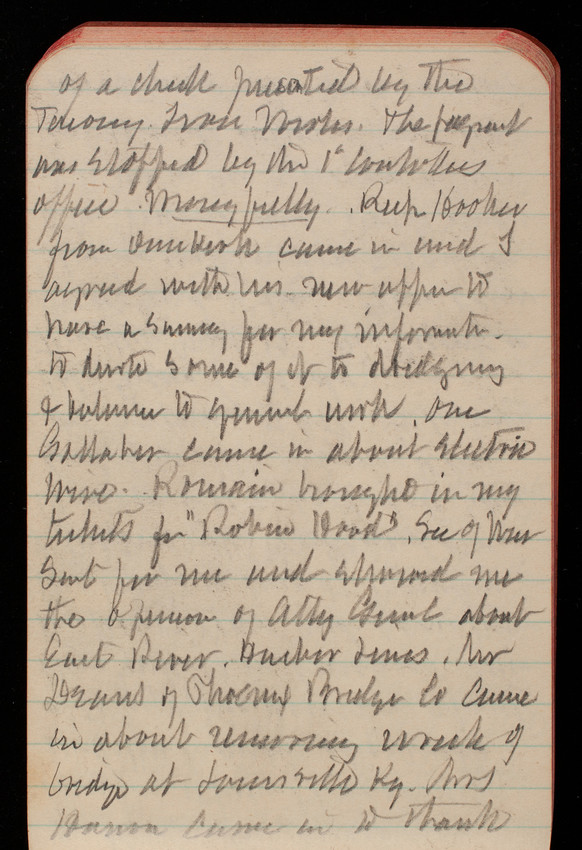 of a check presented by the
Iron Works. The payment
was stopped by the 1st Controllers
office. Rep. Hooker
from came in and I
agreed with his new offer to
have a survey for my information
to devote some of it to dredging
& balance to general work. One
Gallaher came in about electric
wire. Romain brought in my
tickets for "Robin Hood". Sec of War
sent for me and showed me
the opinion of Atty Genl about
East River, Harbor lines. Mr
Deans of Phoenix Bridge Co came
in about removing wreck of
bridge at Louisville Ky. Mrs
came in to thank